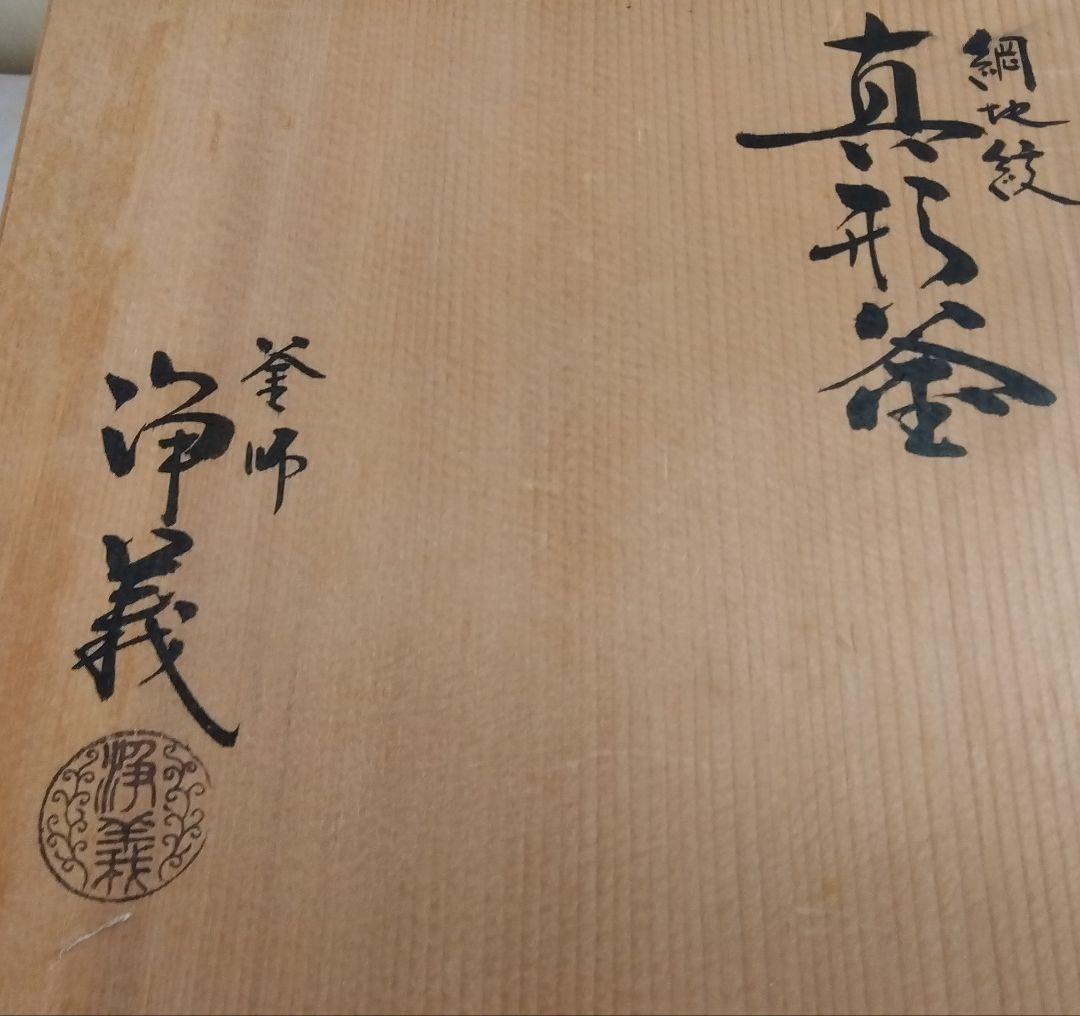 網地紋
真形釜
釜師
浄義
浄義